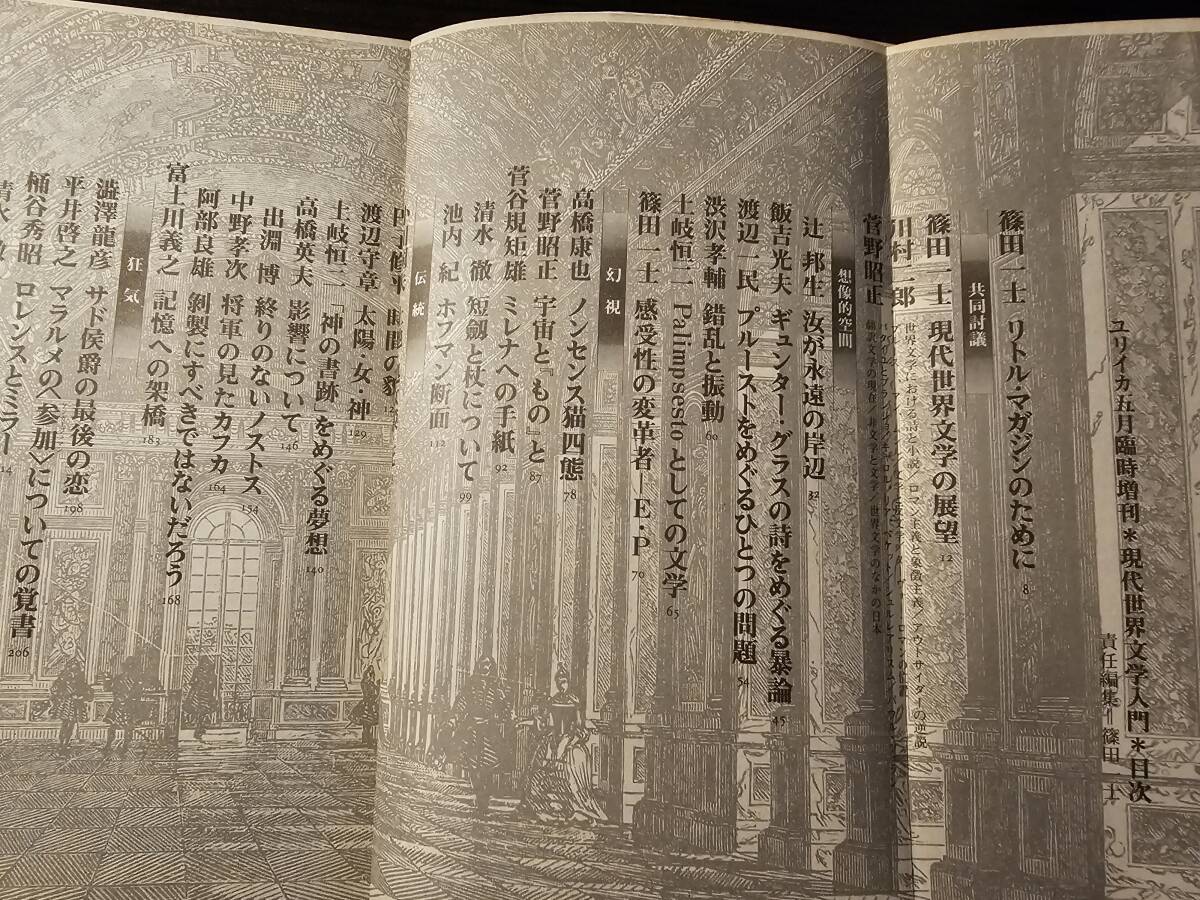 ユリイカ五月臨時増刊＊現代世界文学入門＊目次
責任編集＝篠田一士
篠田一士 リトル・マガジンのために 8
共同討議
篠田一士 現代世界文学の展望 12
川村二郎
菅野昭正
世界文学における詩と小説／ロマン主義と象徴主義／アウトサイダーの逆説
翻訳文学の現在／非文学と文学／世界文学のなかの日本
想像的空間
辻 邦生 汝が永遠の岸辺 32
飯吉光夫 ギュンター・グラスの詩をめぐる暴論 45
渡辺一民 プルーストをめぐるひとつの問題 54
渋沢孝輔 錯乱と振動 60
土岐恒二 Palimpsesto としての文学 65
篠田一士 感受性の変革者—E・P 70
幻視
高橋康也 ノンセンス猫四態 78
菅野昭正 宇宙と『もの』と 87
菅谷規矩雄 ミレナへの手紙 92
清水 徹 短劔と杖について 99
池内 紀 ホフマン断面 112
伝統
渡辺守章 太陽・女・神 129
土岐恒二 「神の書跡」をめぐる夢想 140
高橋英夫 影響について 146
出淵 博 終りのないノストス 154
中野孝次 将軍の見たカフカ 164
阿部良雄 剝製にすべきではないだろう 168
富士川義之 記憶への架橋 183
狂気
澁澤龍彦 サド侯爵の最後の恋 198
平井啓之 マラルメの〈参加〉についての覚書 206
桶谷秀昭 ロレンスとミラー